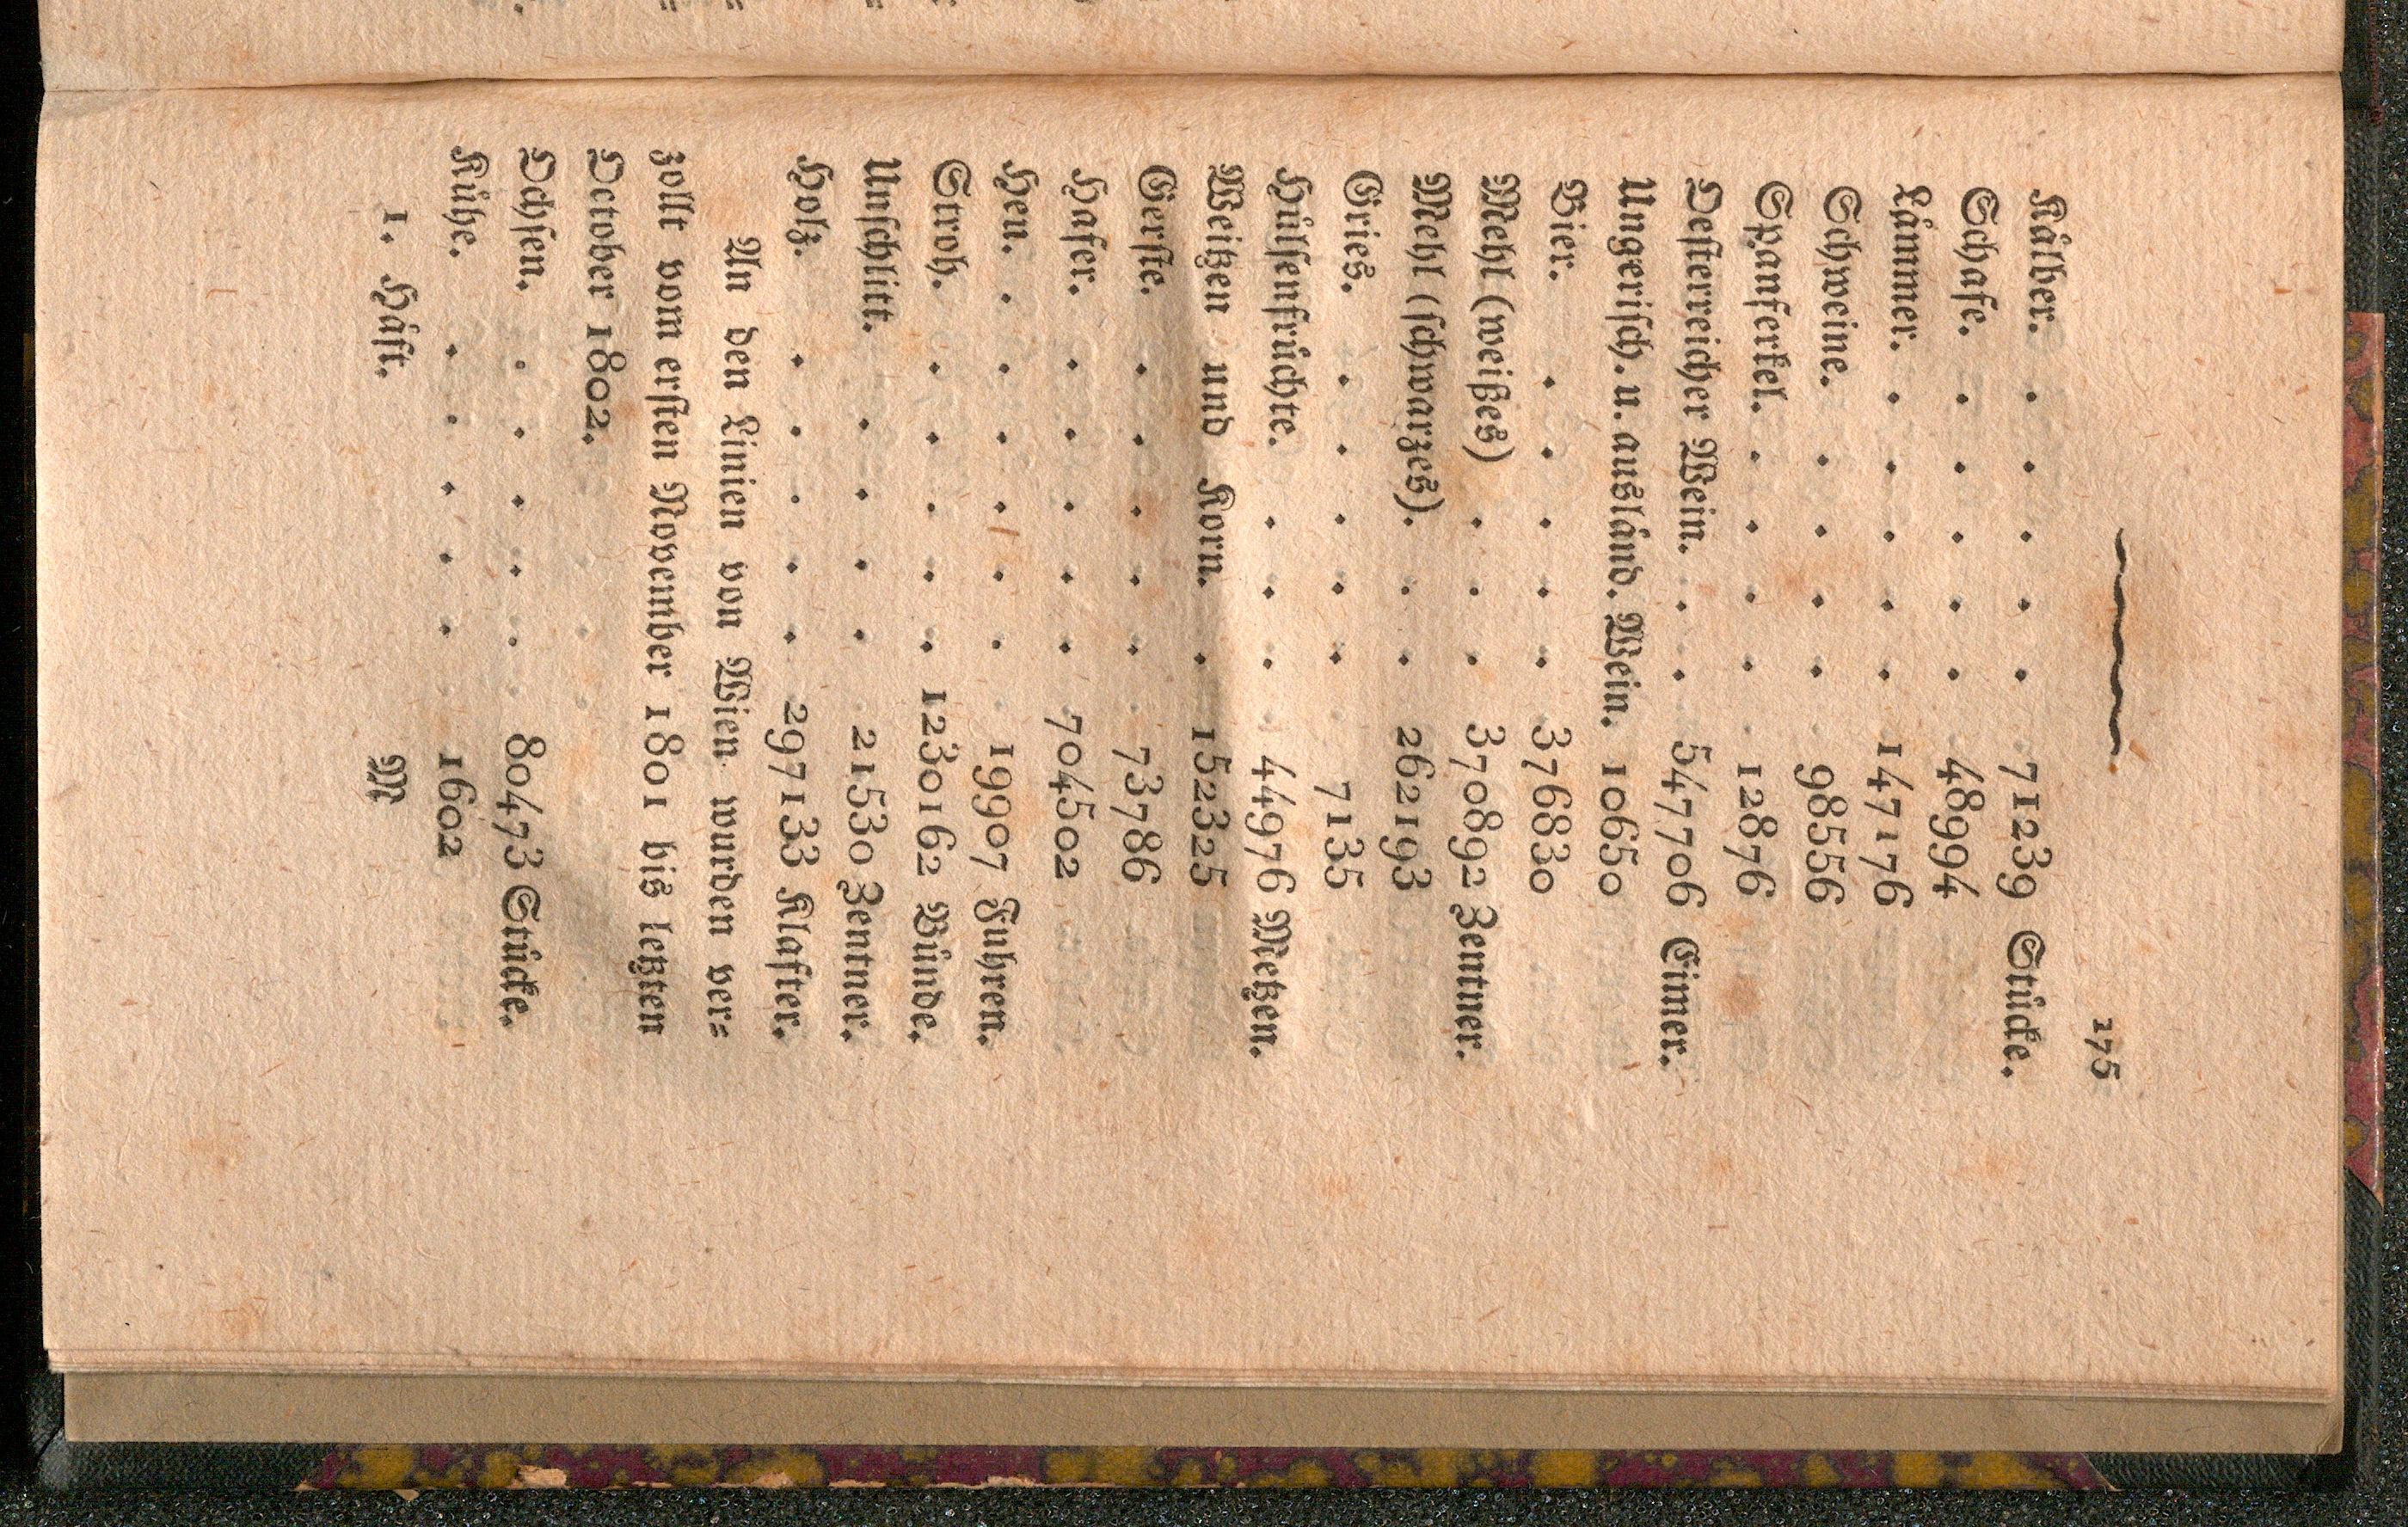 175
Kälber. . . . . . 71239 Stücke.
Schafe. . . . . . 48994
Lämmer. . . . . . 147176
Schweine. . . . . 98556
Spanferkel. . . . . 12876
Oesterreicher Wein. . . . 547706 Eimer.
Ungerisch. u. ausländ. Wein. 10650
Bier. . . . . . 376830
Mehl (weißes) . . . 370892 Zentner.
Mehl (schwarzes). . . 262193
Gries. . . . . . 7135
Hülsenfrüchte. . . . 44976 Metzen.
Weitzen und Korn. . 152325
Gerste. . . . . . 73786
Hafer. . . . . . 704502
Heu. . . . . . . 19907 Fuhren.
Stroh. . . . . . 1230162 Bünde.
Unschlitt. . . . . 21530 Zentner.
Holz. . . . . . 297133 Klafter.
An den Linien von Wien wurden ver=
zollt vom ersten November 1801 bis letzten
October 1802.
Ochsen. . . . . . 80473 Stücke.
Kühe. . . . . . 1602
1. Häft. M